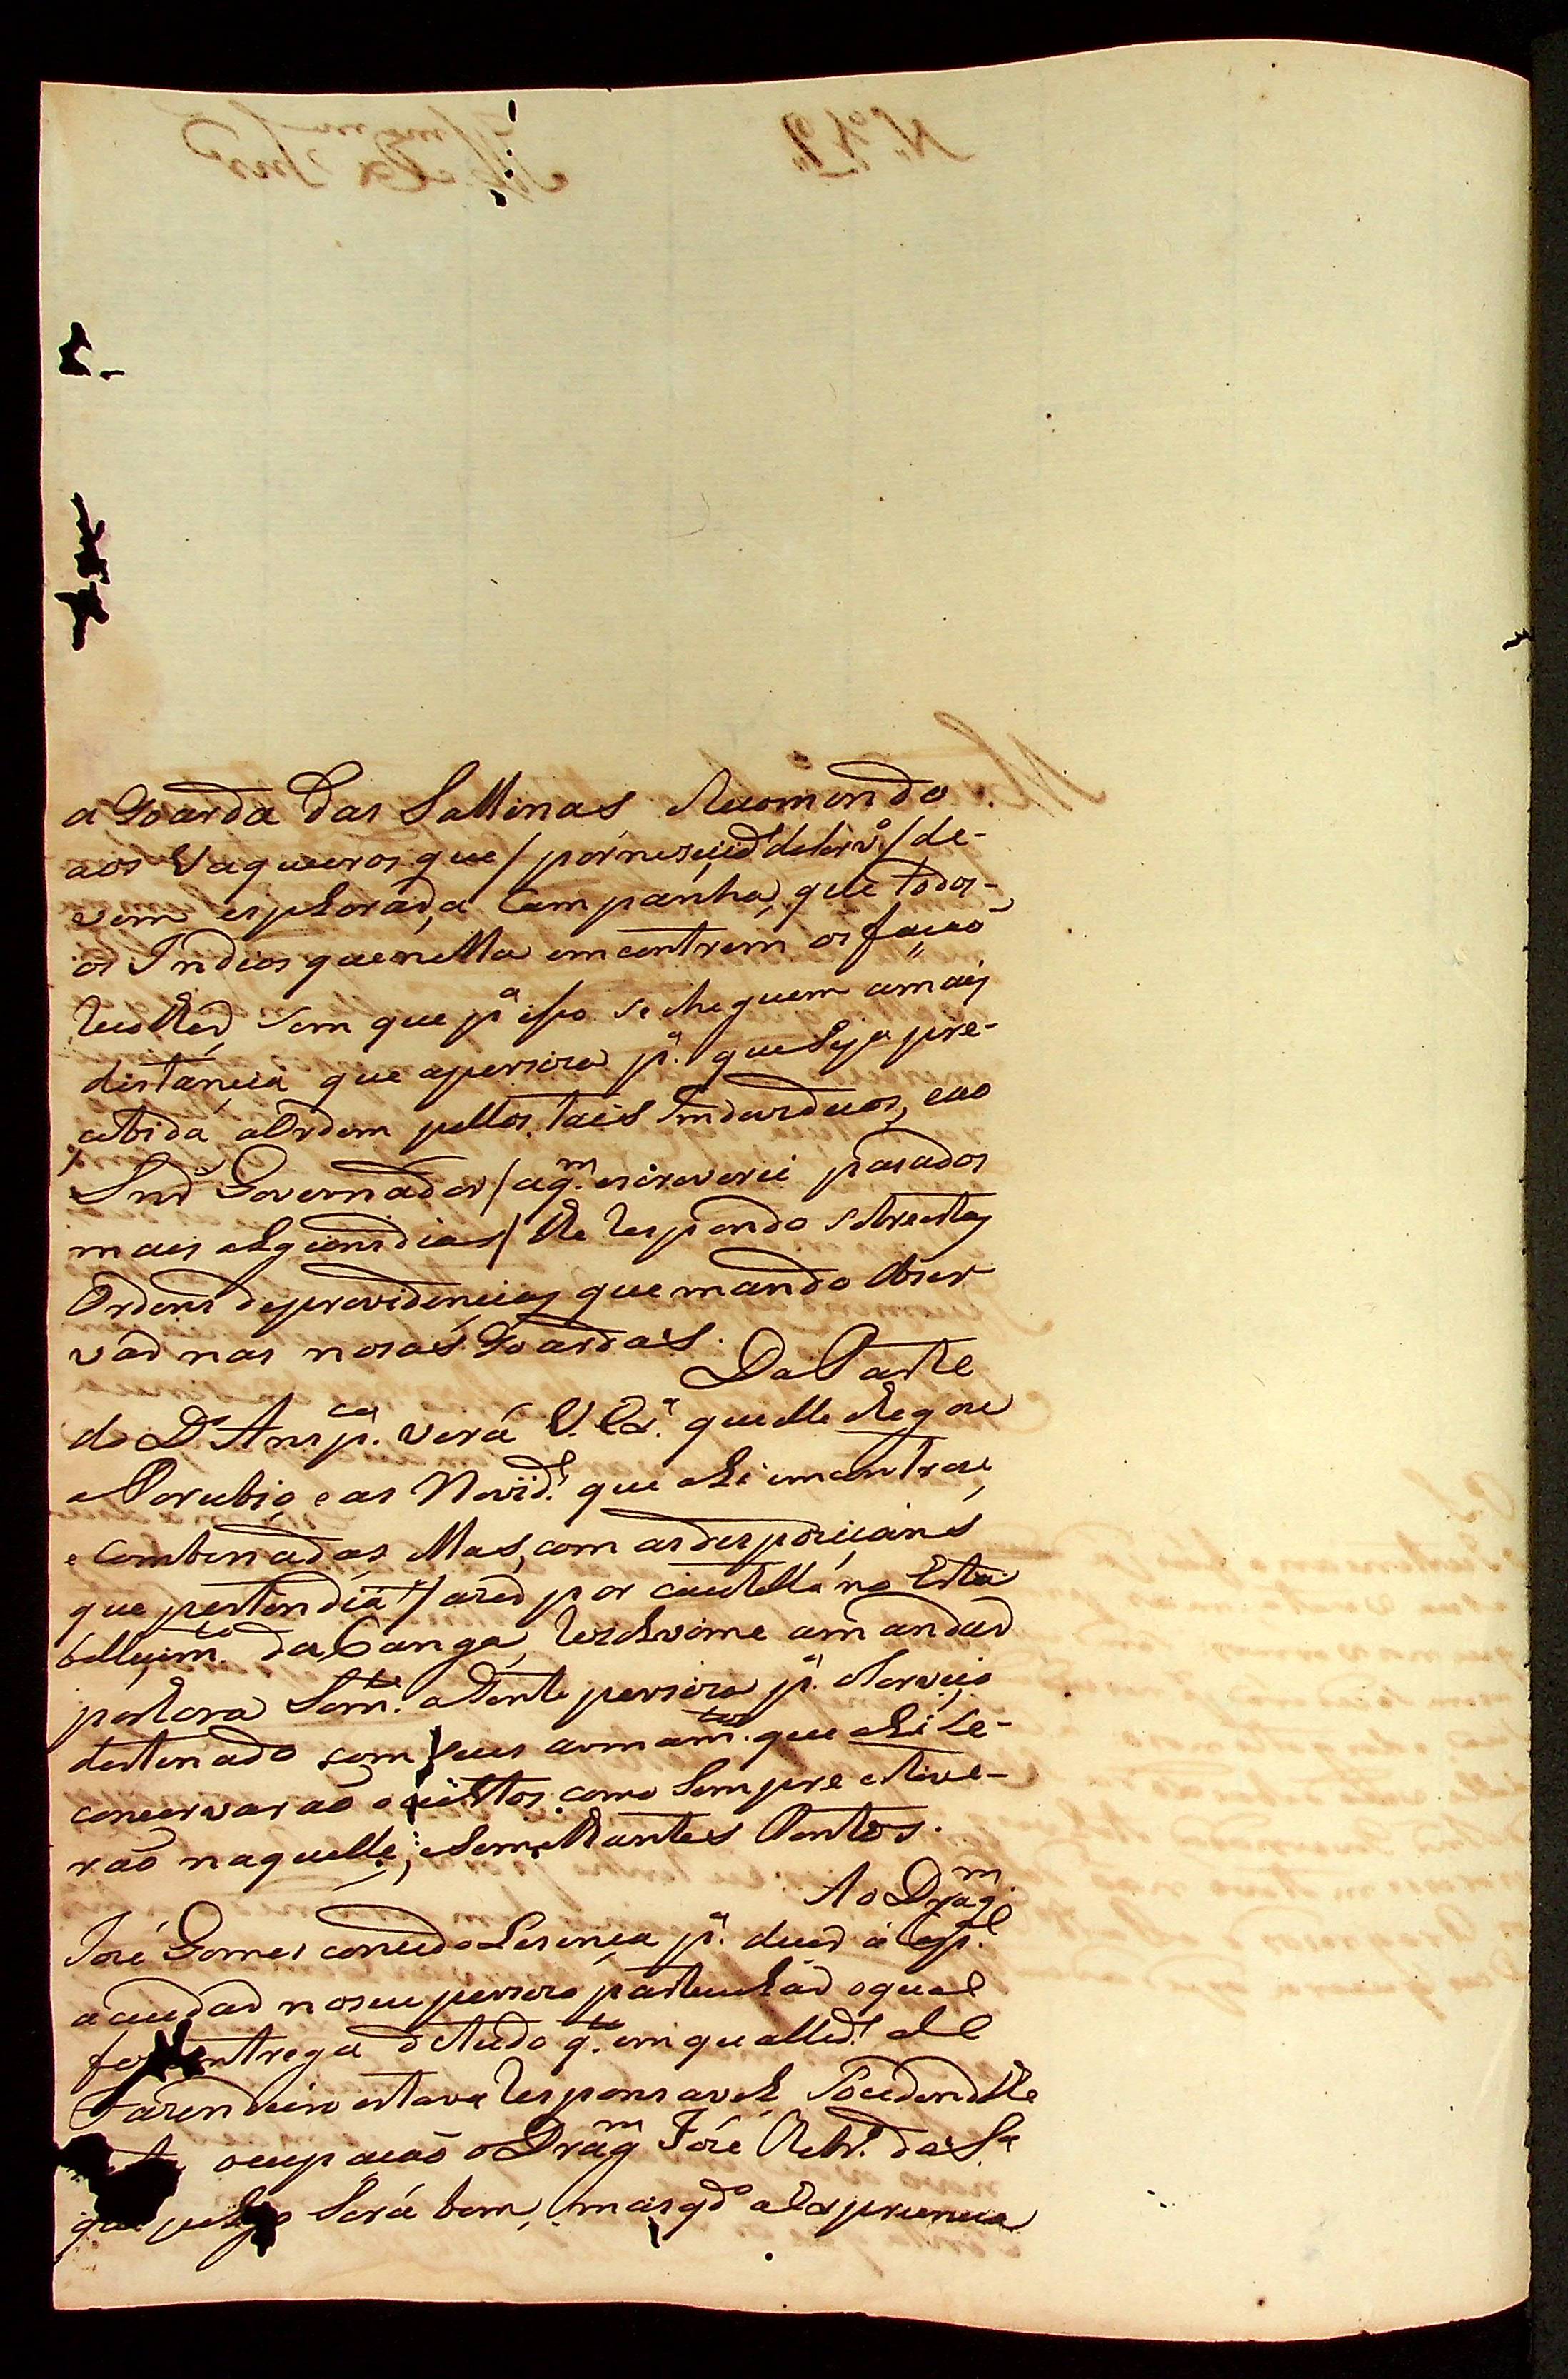 a Goarda das Sallinas Recomendo
aos Vaqueiros que / por neseçid.e deserv.o / de-
vem esplorar a Campanha, que todos-
os Indios que nella emcontrem os façaõ
recolher, sem que p.a ißo se cheguem amais
distánçia que apersiza p.a que Seja pre-
cebida a Ordem pellos tais Indeviduos, eao
Snr Governador / aq.m escreverei pasados
mais alguns dias / lhe respondo sobreestas
Ordens deprovidençias que mando obser
var nas nosas Goardas.
Da Parte
do D.o Ansp.ca verá V. Ex.a quelle chegou
a Corubio e as Novid.es que ali emcontrou,
e combenadas Mas, com as despoziçoins
que pertendiaõ / azer por cautella no Esta
belleçim.to da Canga, resolvime amandar
por hora Som.te a Gente perciza p.a o Serviço
destenado com seus armam.tos que ali se-
concervaraõ ocultos como Sempre estive-
raõ naquelle, e Semelhantes Pontos.
Ao Drag.m
Joze Gomes concedo Lesença p.a deçer á Cap.al
acuidar noseu persizo particular o qual
fez entrega detudo q.to em qualid.e de
Fazendeiro estava responsavel, Soçedendolhe
ocupaçaõ o Drag.m Joze Ribr.o da S.a
que julgo Será bom, mas q.do a Expriencia